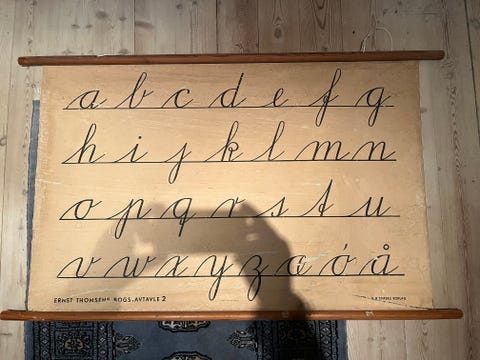 a b c d e f g
h i j k l m n
o p q r s t u
v w x y z æ ó å
ERNST THOMSENS BOGS.AVTAVLE 2